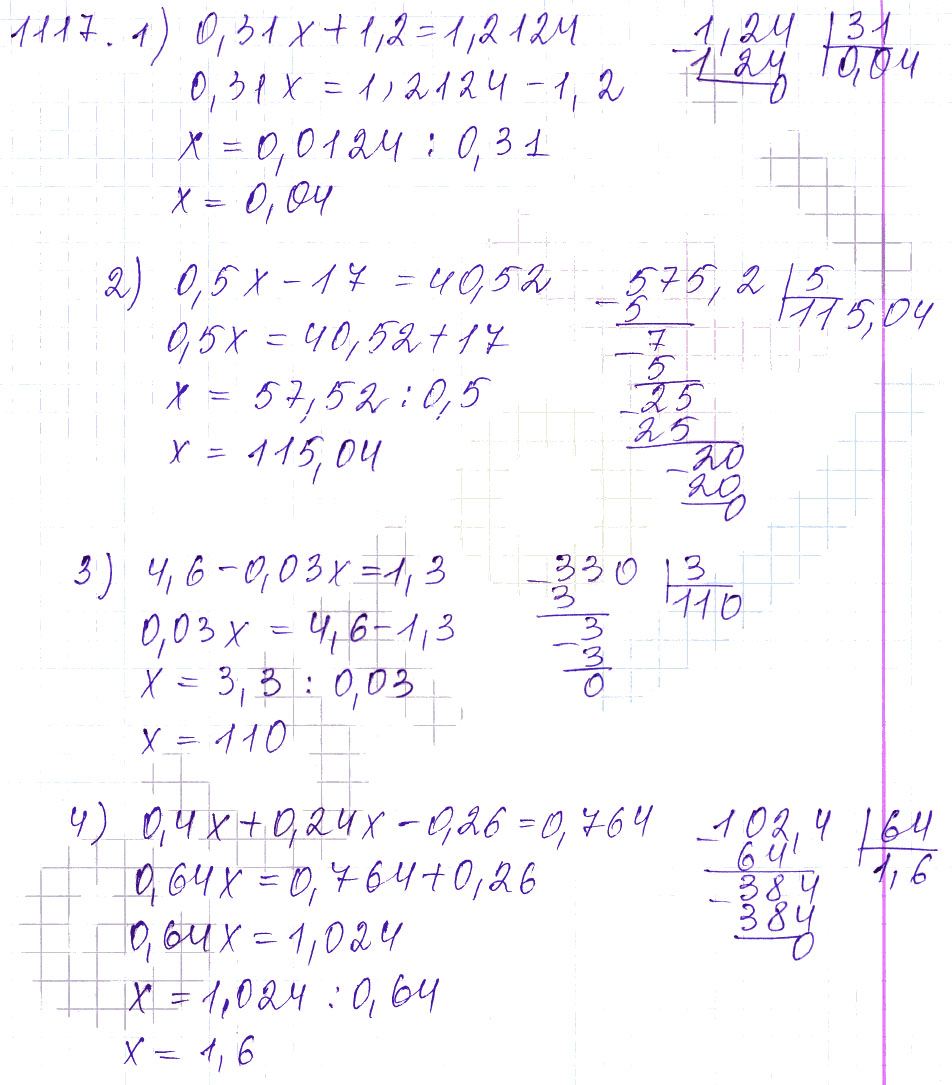 1117. 1) 0,31x + 1,2 = 1,2124
0,31x = 1,2124 - 1,2
x = 0,0124 : 0,31
x = 0,04
1,24 | 31
- 1 24 | 0,04
0
2) 0,5x - 17 = 40,52
0,5x = 40,52 + 17
x = 57,52 : 0,5
x = 115,04
- 575,2 | 5
5 | 115,04
- 7
5
- 25
25
- 20
20
0
3) 4,6 - 0,03x = 1,3
0,03x = 4,6 - 1,3
x = 3,3 : 0,03
x = 110
- 330 | 3
3 | 110
- 3
3
0
4) 0,4x + 0,24x - 0,26 = 0,764
0,64x = 0,764 + 0,26
0,64x = 1,024
x = 1,024 : 0,64
x = 1,6
- 102,4 | 64
64 | 1,6
- 384
384
0